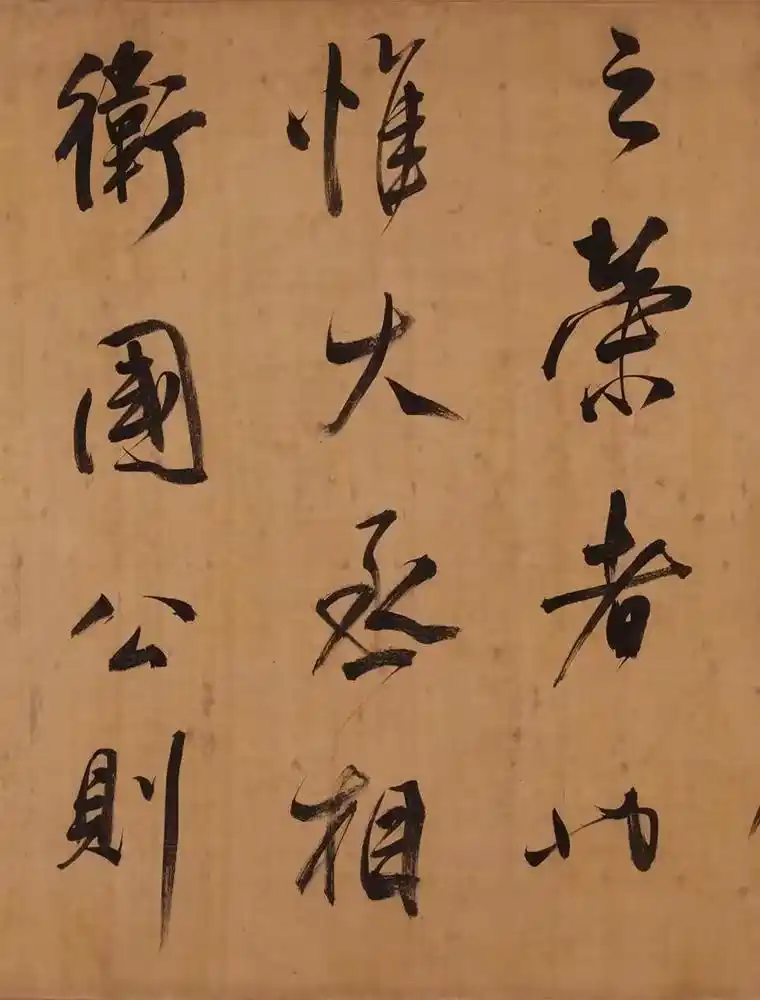 之榮者也
惟大丞相
衛國公則